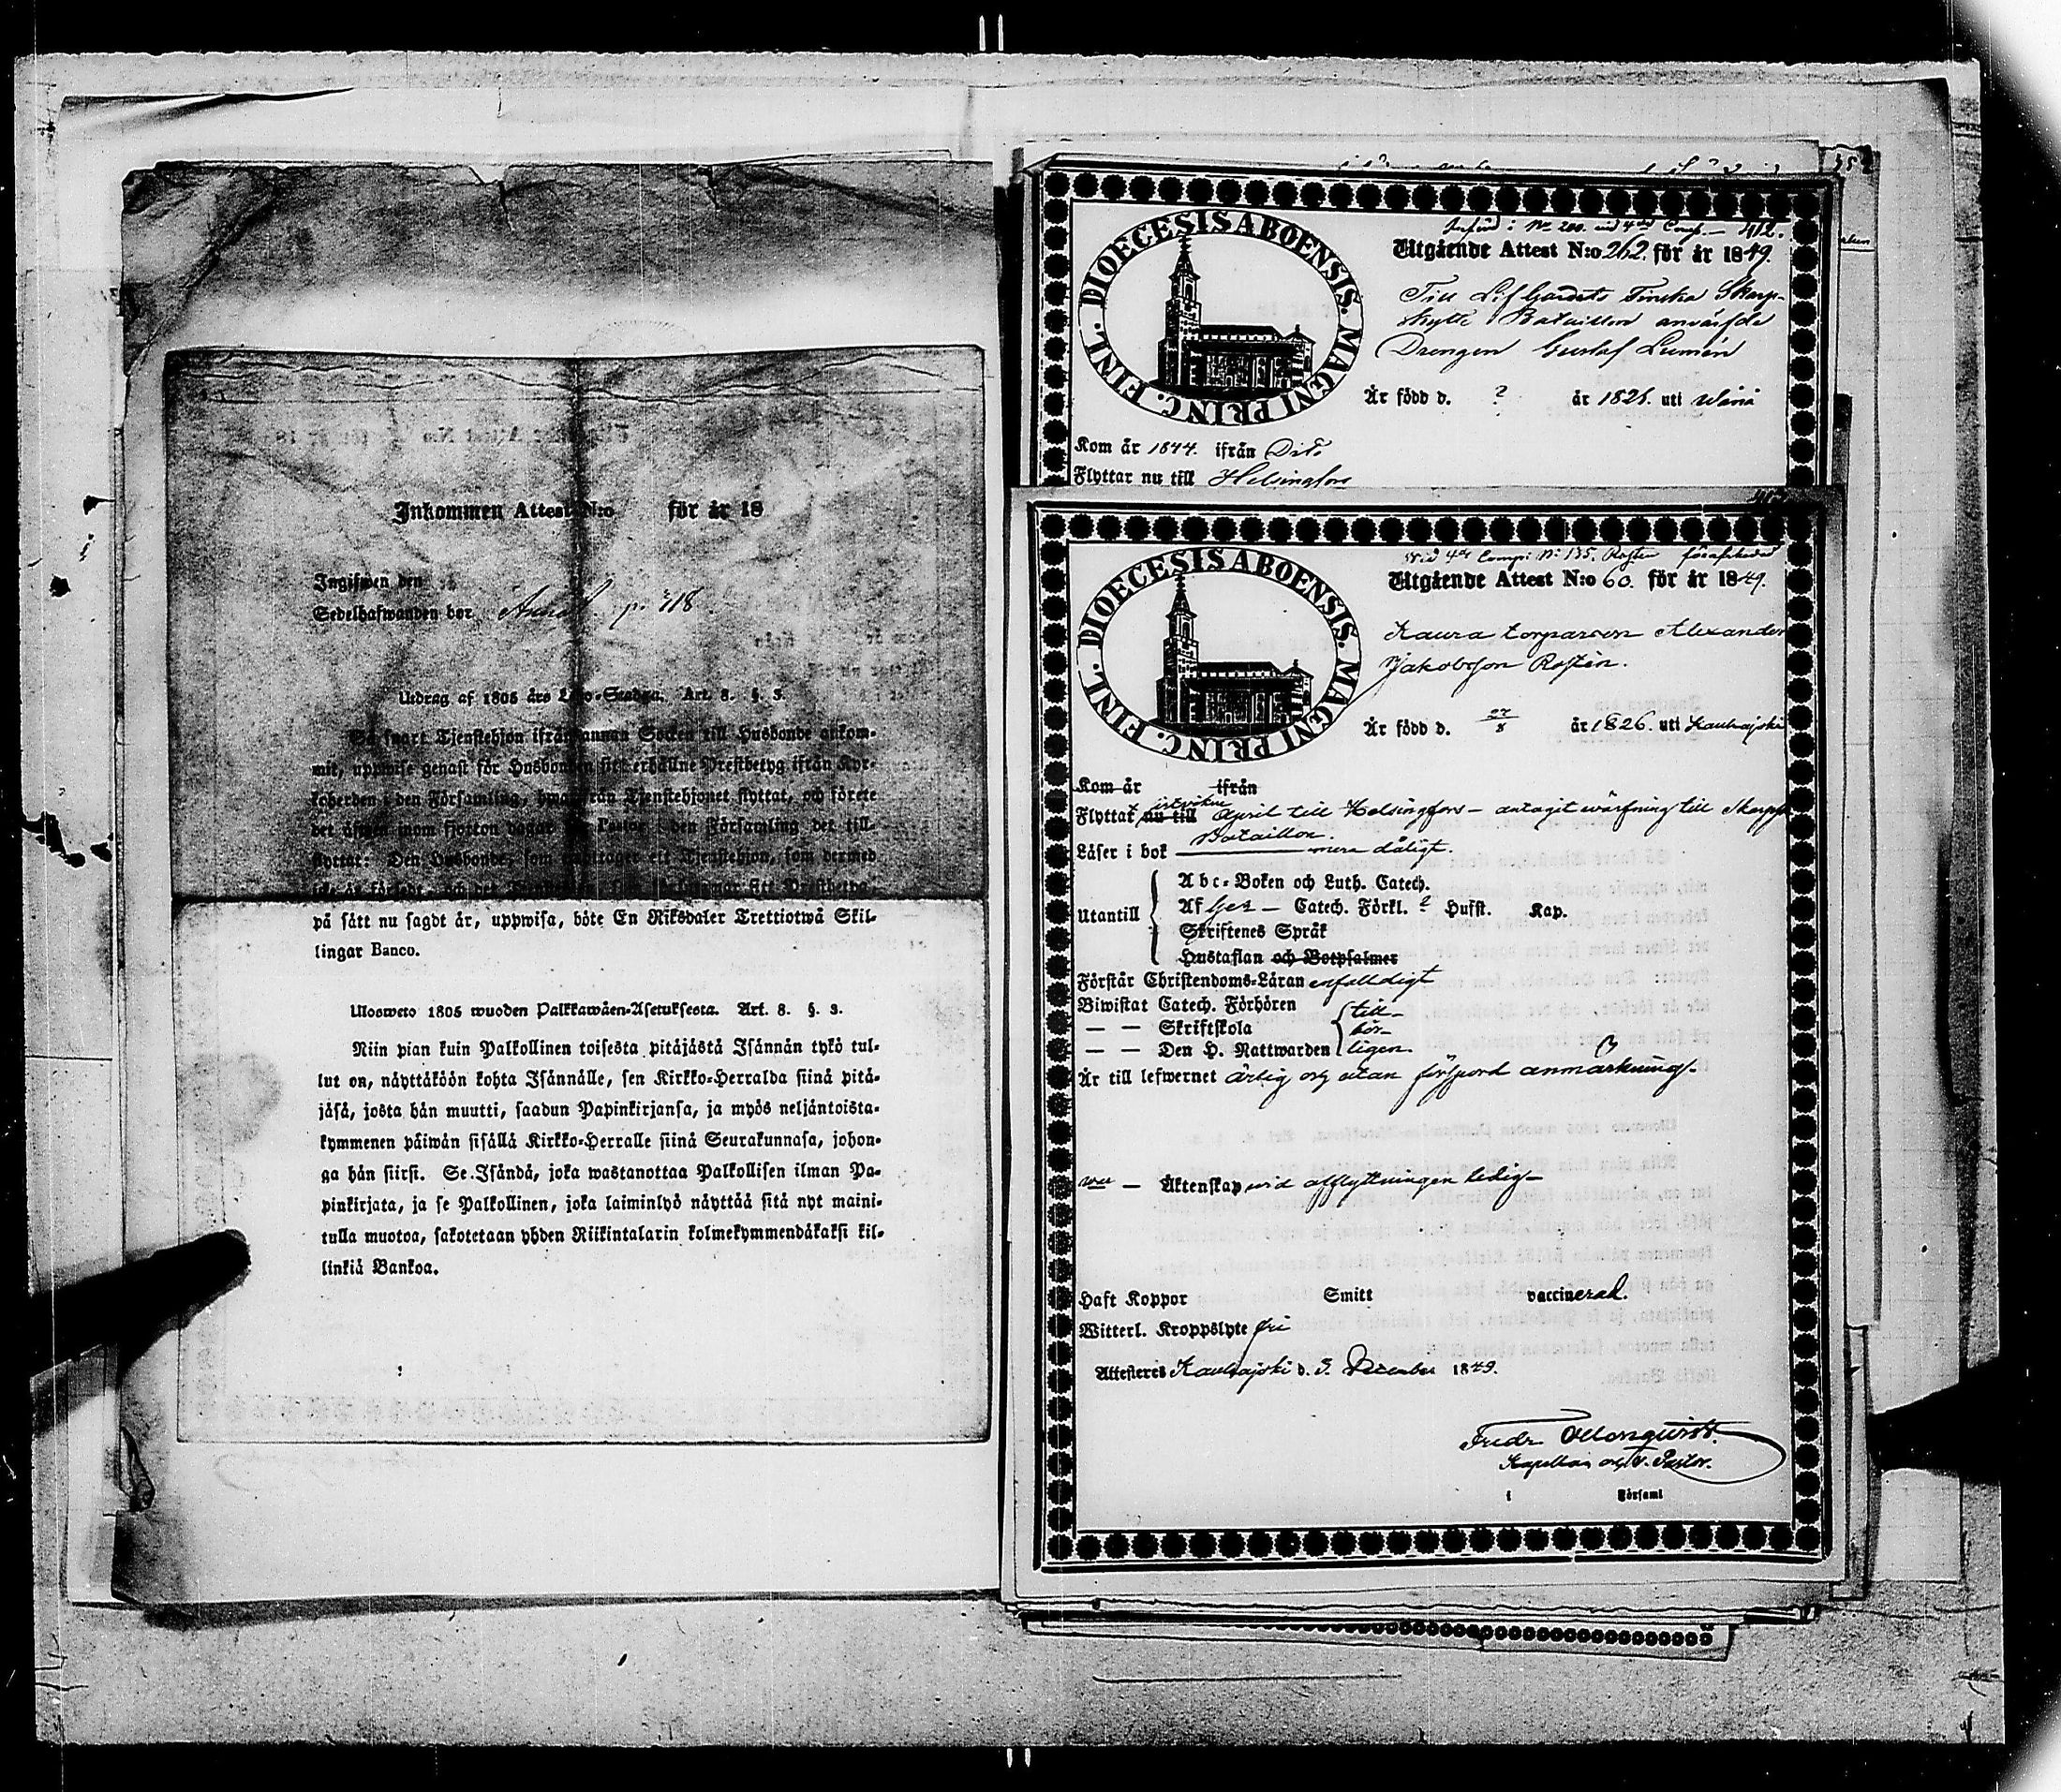 Inkommen Attest N:o för år 18
Ingifwen den
Sedelhafwanden bor p. 318
Utdrag af 1805 års Lego-Stadga. Art. 8. §. 3.
Så snart Tjenstehjon ifrån annan Socken till Husbonde ankom-
mit, uppwise genast för Husbonden sitt erhållne Prestbetyg ifrån Kyr-
koherden i den Församling, hwarifrån Tjenstehjonet flyttat, och förete
det äfwen inom fjorton dagar för Pastor i den Församling det till-
flyttat: Den Husbonde, som emottager ett Tjenstehjon, som dermed
icke är försedt, och det Tjenstehjon, som försummar sitt Prestbetyg,
på sätt nu sagdt är, uppwisa, böte En Riksdaler Trettiotwå Skil-
lingar Banco.
Ulosweto 1805 wuoden Palkkawäen-Asetuksesta. Art. 8. §. 3.
Niin pian kuin Palkollinen toisesta pitäjästä Isännän tykö tul-
lut on, näyttäköön kohta Isännälle, sen Kirkko-Herralda siinä pitä-
jäsä, josta hän muutti, saadun Papinkirjansa, ja myös neljäntoista-
kymmenen päiwän sisällä Kirkko-Herralle siinä Seurakunnasa, johon-
ga hän siirsi. Se Isändä, joka wastanottaa Palkollisen ilman Pa-
pinkirjata, ja se Palkollinen, joka laiminlyö näyttää sitä nyt maini-
tulla muotoa, sakotetaan yhden Riikintalarin kolmekymmendäkaksi kil-
linkiä Bankoa.
DIOECESIS ABOENSIS. MAGNI PRINC. FINL.
Utgående Attest N:o 262. för år 1849.
Till Lif Gardets Finska Skarp-
skytte Bataillon anvärfde
Drengen Gustaf Lumén
Är född d. ? år 1826. uti
Kom år 1844. ifrån Dito
Flyttar nu till Helsingfors
DIOECESIS ABOENSIS. MAGNI PRINC. FINL.
Wid 4de Comp: N: 135. Rosten
Utgående Attest N:o 60. för år 1849.
torparson Alexander
Jakobsson Rostén.
Är född d. 27/8 år 1826. uti Kauhajoki
Kom år ifrån
Flyttat nu till April till Helsingfors – antagit wärfning till Skarpsk
Bataillon.
Läser i bok mera dåligt.
Utantill
Abc-Boken och Luth. Catech.
Af Ger – Catech. Förkl. ? Hufst. Kap.
Skriftenes Språk
Hustaflan och Botpsalmer
Förstår Christendoms-Läran enfaldigt
Biwistat Catech. Förhören till-
— — Skriftskola bör-
— — Den H. Nattwarden ligen.
Är till lefwernet ärlig och utan förspord anmärkning.
— Äktenskap wid afflyttningen ledig –
Haft Koppor Smitt vaccinerad.
Witterl. Kroppslyte fri
Attesteres Kauhajoki d. 3. December 1849.
Kapellan och v. Pastor.
i Församl